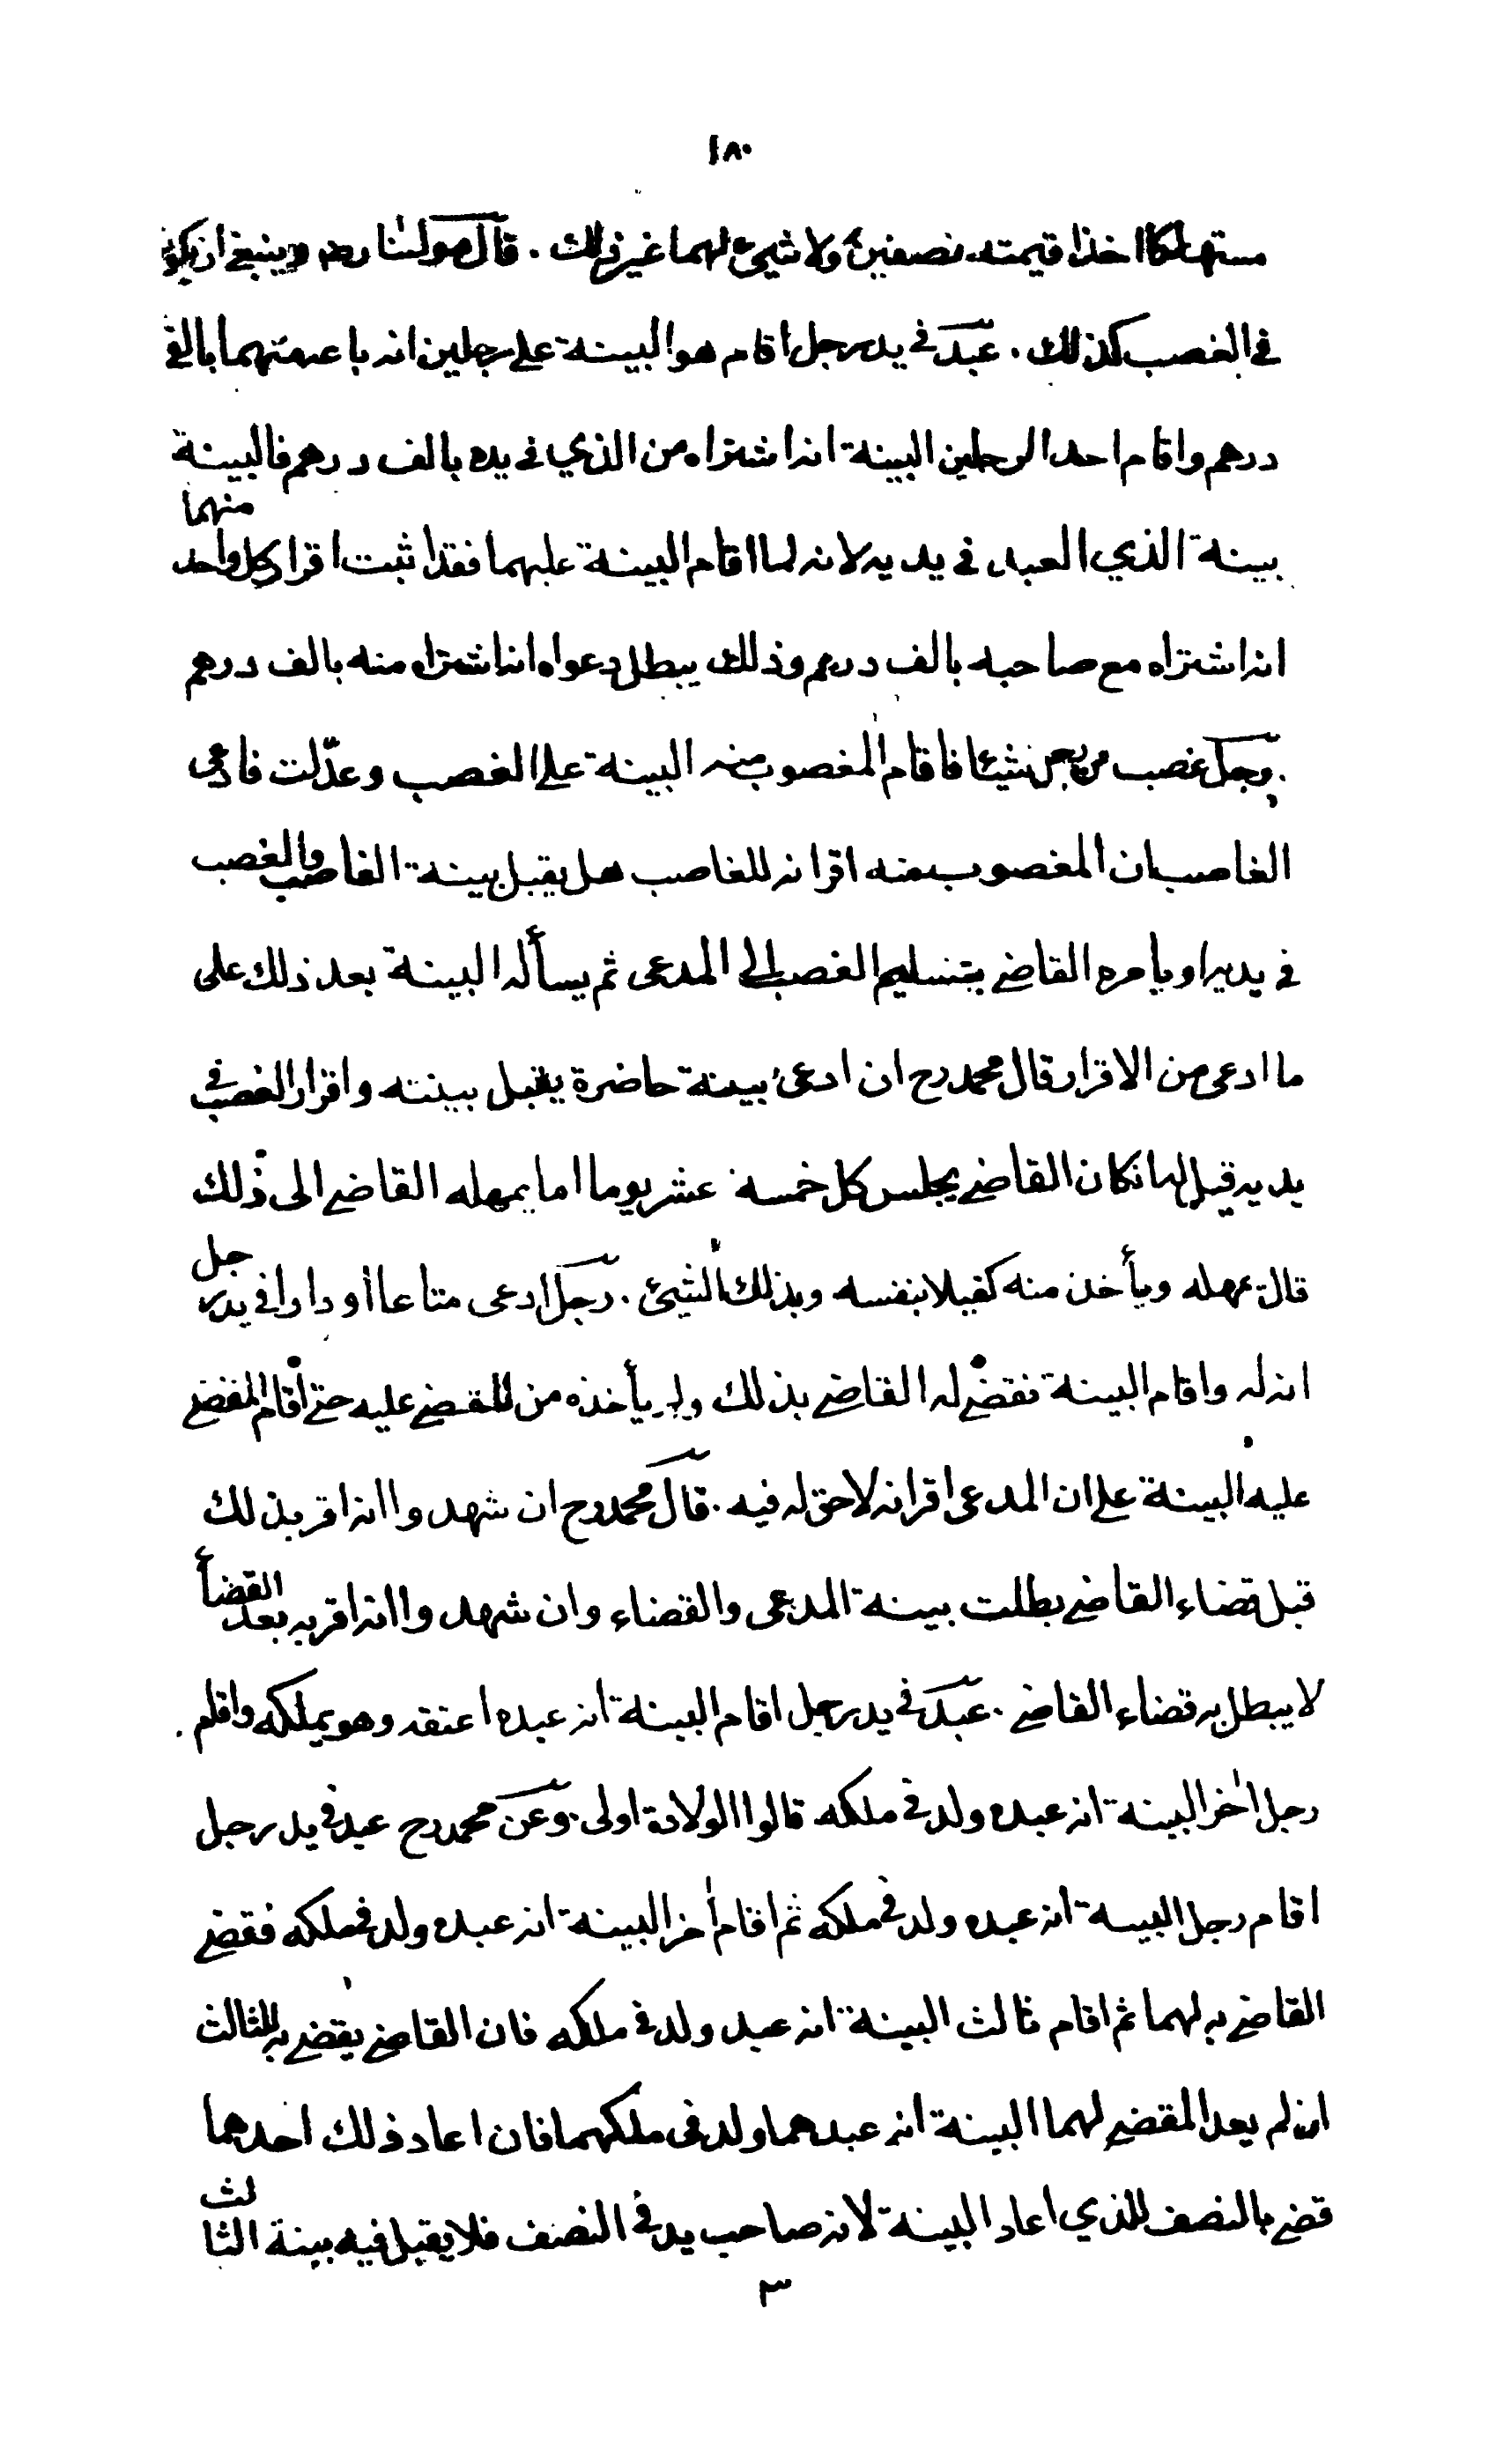 ١٨٠
مستهلكا اخذا قيمته نصفين ولا شيئ لهما غير ذلك . قال مولٰنا رضہ وينبغي ان يكون
في الغصب كذلك . عبد في يد رجل اقام هو البينة على رجلين انه باعه منهما بالف
درهم واقام احد الرجلين البينة انه اشتراه من الذي في يده بالف درهم فالبينة
بينة الذي العبد في يديه لانه لما اقام البينة عليهما فقد اثبت اقرار كل واحد منهما
انه اشتراه مع صاحبه بالف درهم وذلك يبطل دعواه انه اشتراه منه بالف درهم
. رجل غصب من رجل شيئا فاقام المغصوب منه البينة على الغصب وعدّلت فادعى
الغاصب ان المغصوب منه اقر انه للغاصب هل يقبل بينة الغاصب والغصب
في يديه او يأمره القاضي بتسليم الغصب الى المدعى ثم يسأله البينة بعد ذلك على
ما ادعى من الاقرار قال محمد رح ان ادعى بينة حاضرة يقبل بينته واقرار الغصب في
يديه قيل له انكان القاضي يجلس كل خمسة عشر يوما اما يمهله القاضي الى ذلك
قال يمهله ويأخذ منه كفيلا بنفسه وبذلك الشيئ . رجل ادعى متاعا أو دارا في يد رجل
انه له واقام البينة فقضى له القاضي بذلك ولم يأخذه من المقضي عليه حتى اقام المقضي
عليه البينة على ان المدعى اقر انه لا حق له فيه . قال محمد رح ان شهدوا انه اقر بذلك
قبل قضاء القاضي بطلت بينة المدعى والقضاء وان شهدوا انه اقر به بعد القضأ
لا يبطل به قضاء القاضي . عبد في يد رجل اقام البينة انه عبده اعتقه وهو يملكه واقام .
رجل اٰخر البينة انه عبده ولد في ملكه قالوا الولادة اولى . وعن محمد رح عبد في يد رجل
اقام رجل البينة انه عبده ولد في ملكه ثم اقام اٰخر البينة انه عبده ولد في ملكه فقضى
القاضي به لهما ثم اقام ثالث البينة انه عبد ولد في ملكه فان القاضي يقضي به للثالث
ان لم يعد المقضي لهما البينة انه عبدهما ولد في ملكهما فان اعاد ذلك احدهما
قضي بالنصف للذي اعاد البينة لانه صاحب يد في النصف فلا يقبل فيه بينة الثالث
٣